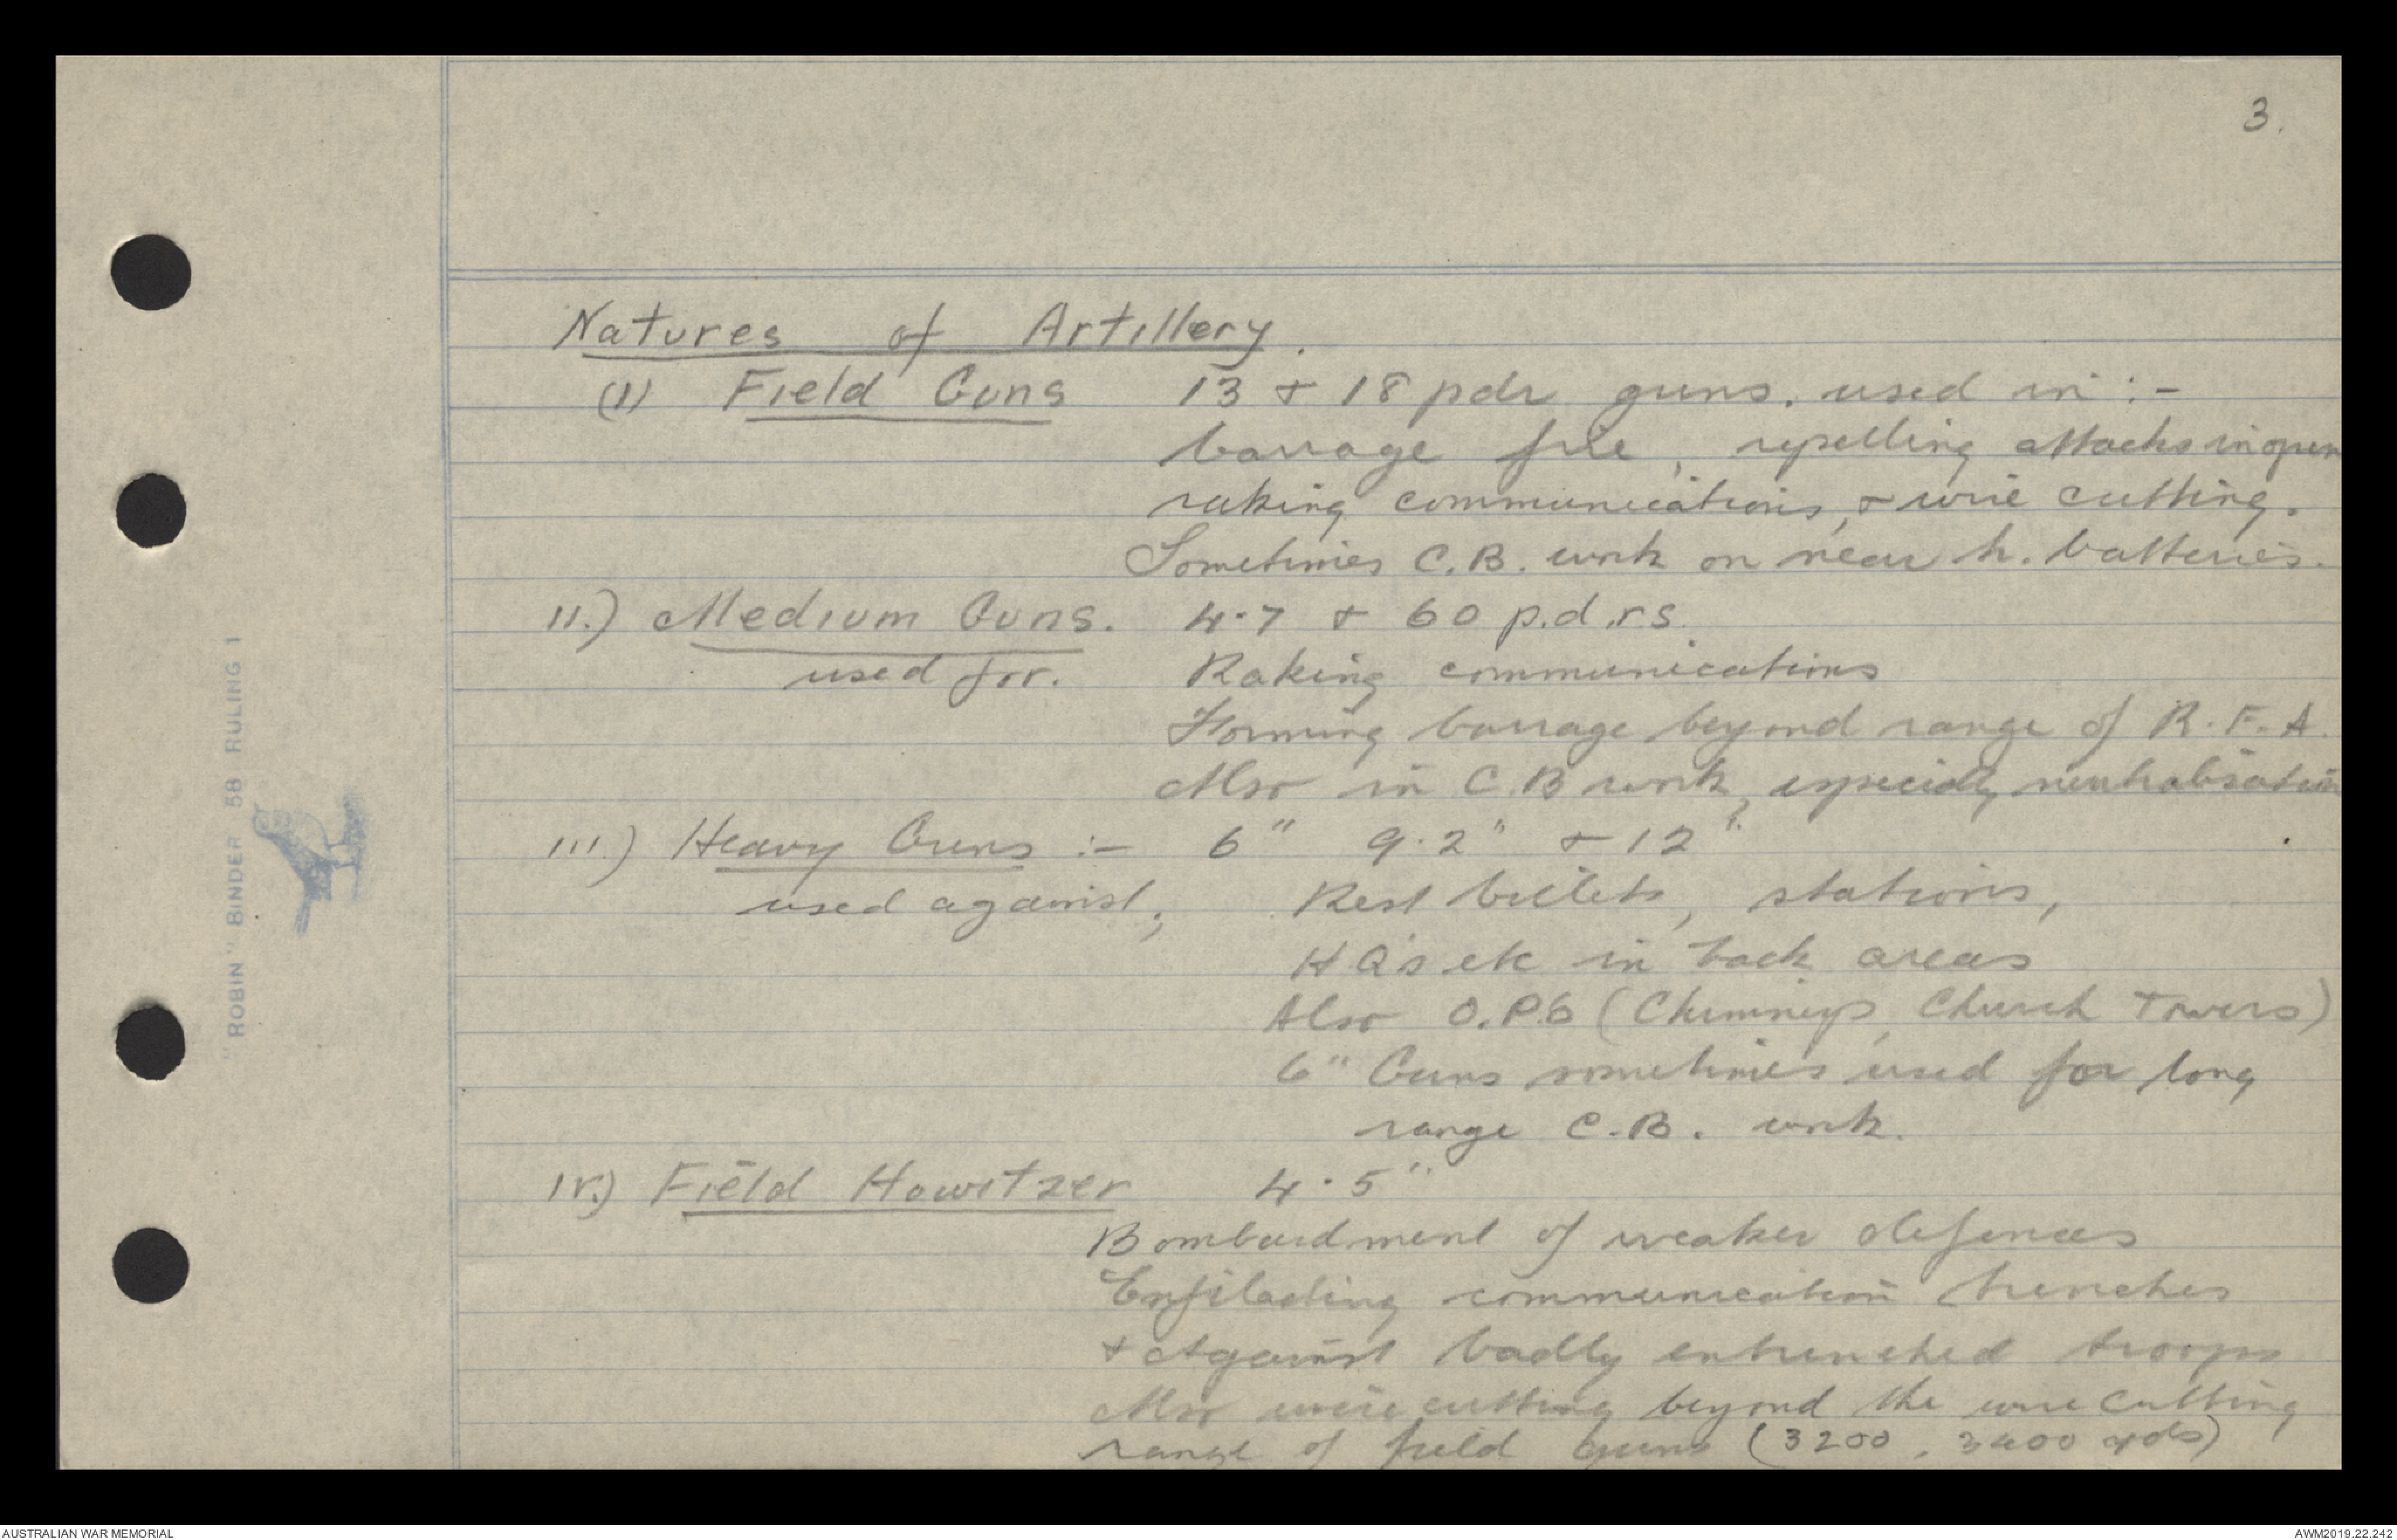 3.
Natures of Artillery.
(1) Field Guns 13 + 18 pdr guns. used in :-
barrage fire, repelling attacks in open
raking communications, + wire cutting.
Sometimes C.B. work on near h. batteries.
11.) Medium Guns. 4.7 + 60 p.d.r.s.
used for. Raking communications
Forming barrage beyond range of R.F.A.
Also in C.B work, especially neutralisation
111.) Heavy Guns :- 6" 9.2" + 12".
used against; Rest billets, stations,
HQ's etc in back areas
Also O.P.s (Chimneys, Church Towers)
6" Guns sometimes used for long
range C.B. work.
IV.) Field Howitzer 4.5"
Bombardment of weaker defences
Enfilading communication trenches
+ Against badly entrenched troops
Also wire cutting beyond the wire cutting
range of field guns (3200, 3400 yds)
"ROBIN" BINDER 5B RULING 1
AUSTRALIAN WAR MEMORIAL
AWM2019.22.242